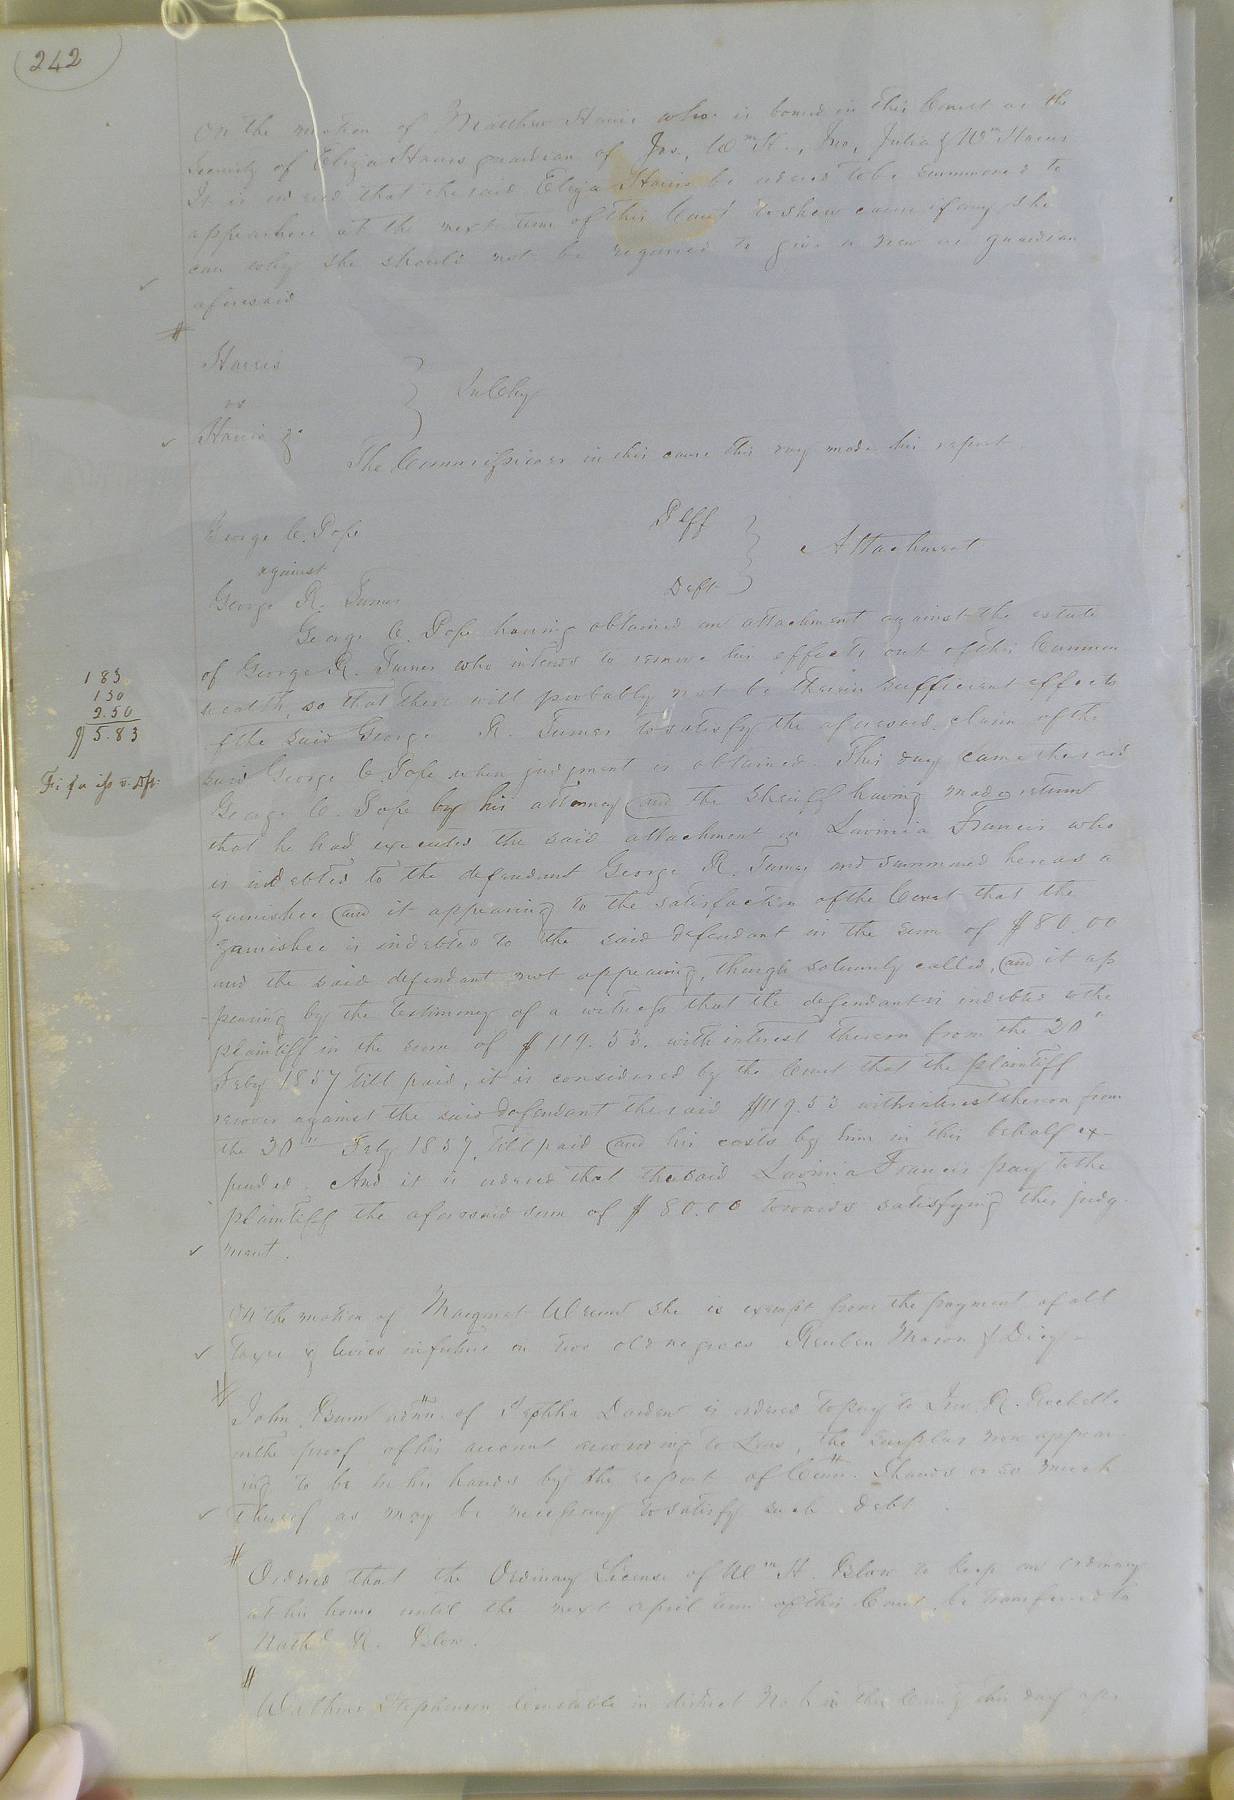 242
On the motion of Matthew Harris who is bound in this Court as the
Security of Eliza Harris guardian of Jas., Wm H., Jno, Julia & Wm Harris
It is ordered that the said Eliza Harris be ordered to be summoned to
appear here at the next term of this Court to show cause if any she
can why she should not be required to give a new as guardian
aforesaid
Harris
vs
Harris &c
In Chy
The Commissioner in this cause this day made his report
George C. Pope Plff
against
Attachment
George R. Turner Deft
George C. Pope having obtained an attachment against the estate
of George R. Turner who intends to remove his effects out of this Common
wealth, so that there will probably not be therein sufficient effects
of the said George R. Turner to satisfy the aforesaid claim of the
said George C. Pope when judgment is obtained. This day came the said
George C. Pope by his attorney and the Sheriff having made return
that he had executed the said attachment in Lavinia Francis who
is indebted to the defendant George R. Turner and summoned her as a
garnishee and it appearing to the satisfaction of the Court that the
garnishee is indebted to the said defendant in the sum of $80.00
and the said defendant not appearing, though solemnly called, and it ap
pearing by the testimony of a witness that the defendant is indebted to the
plaintiff in the sum of $119.53. with interest thereon from the 20
Feby 1857 till paid, it is considered by the Court that the plaintiff
recover against the said defendant the said $119.53 with interest thereon from
the 20th Feby 1857, till paid and his costs by him in this behalf ex-
pended. And it is ordered that the said Lavinia Francis pay to the
plaintiff the aforesaid sum of $80.00 towards satisfying this judg
ment.
1 83
1 50
2.50
$5.83
Fi: fa iss
On the motion of Margaret she is exempt from the payment of all
taxes & levies in future on two old negroes Reuben Mason &
John admr. of Jephtha Darden is ordered to pay to Jno. R. Rochelle
on the proof of his account according to Law, the surplus now appear
ing to be in his hands by the report of Comr. or so much
thereof as may be necessary to satisfy such debt.
Ordered that the Ordinary License of Wm H. Blow to keep an ordinary
at his house until the next april term of this Court, be transferred to
Nathl R. Blow.
Stephenson Constable in district No in this County this day